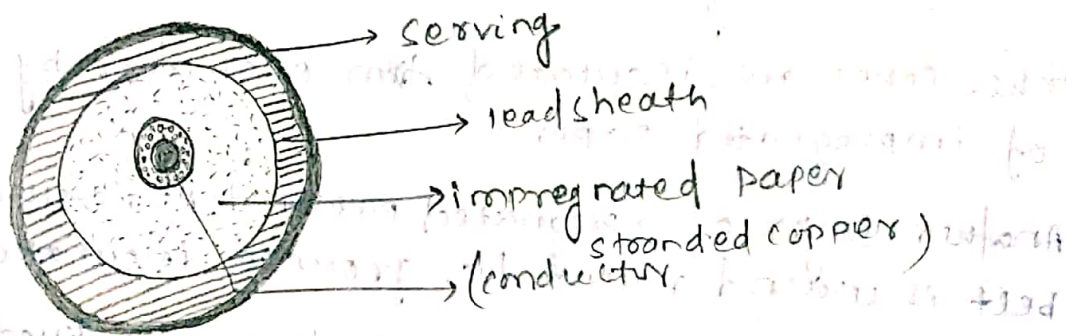 serving
lead sheath
impregnated paper
stranded copper)
(conductor